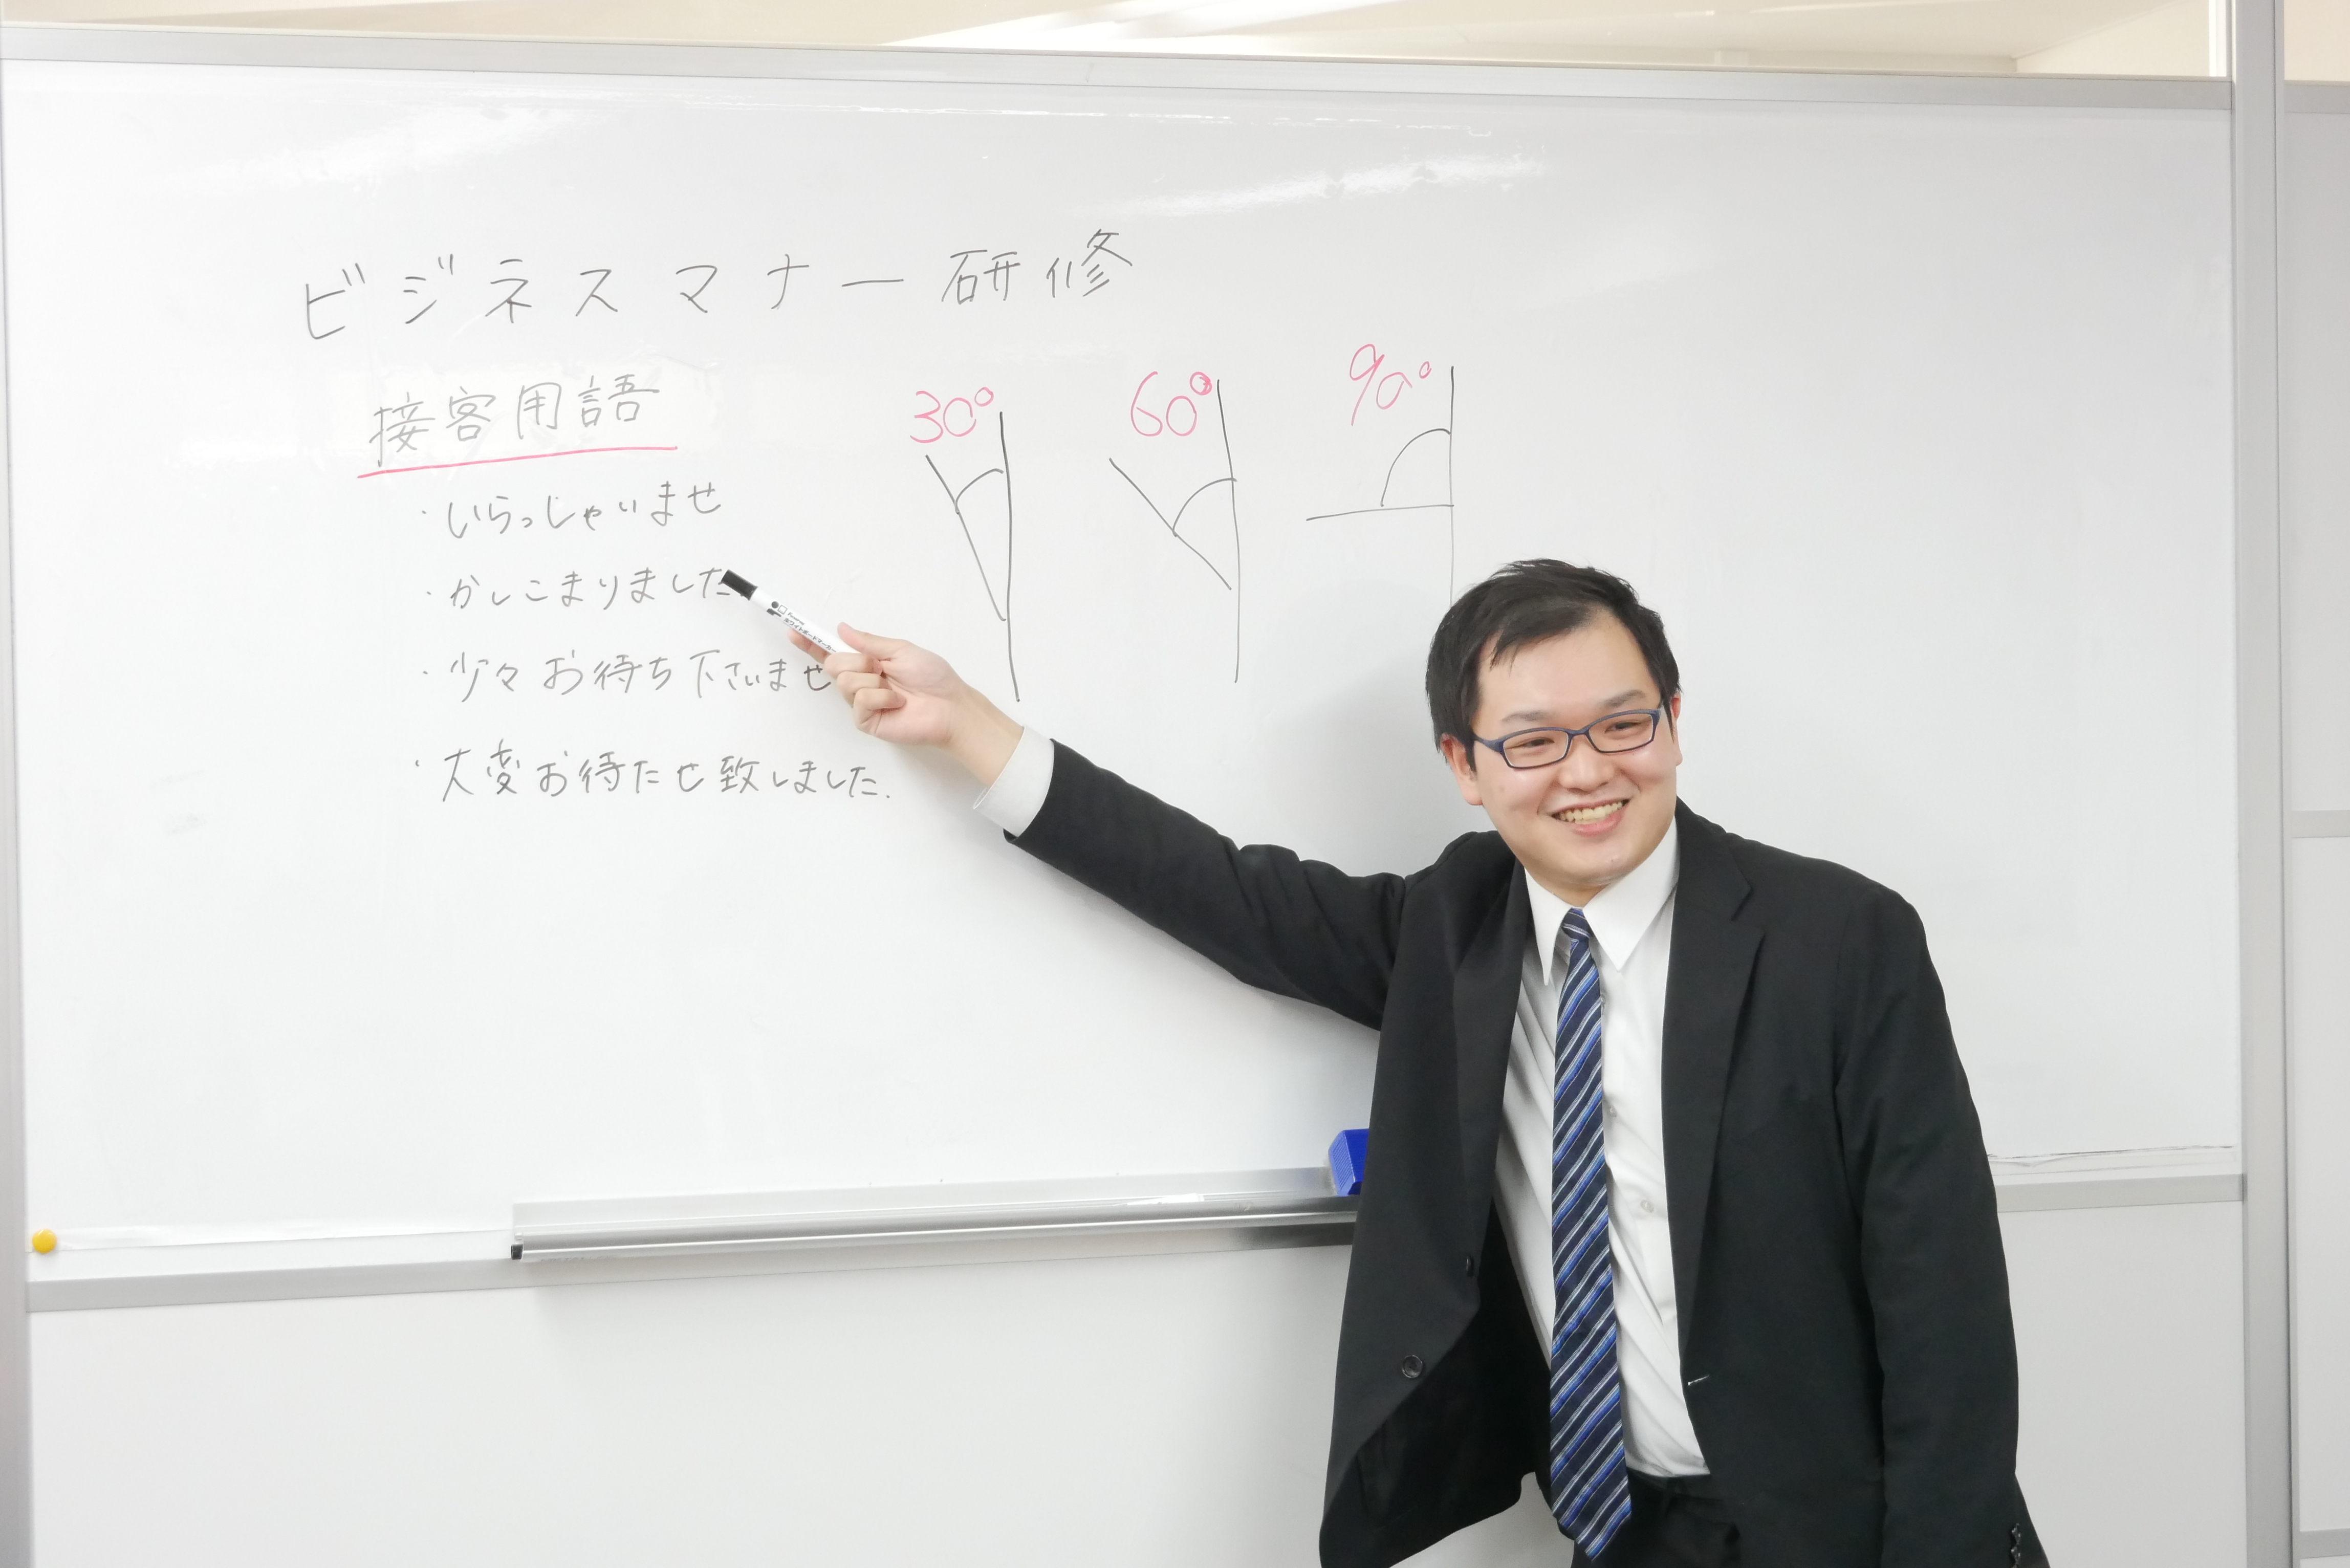 ビジネスマナー研修
接客用語
・いらっしゃいませ
・かしこまりました
・少々お待ち下さいませ
・大変お待たせ致しました.
30°
60°
90°
ホワイトボードマーカー